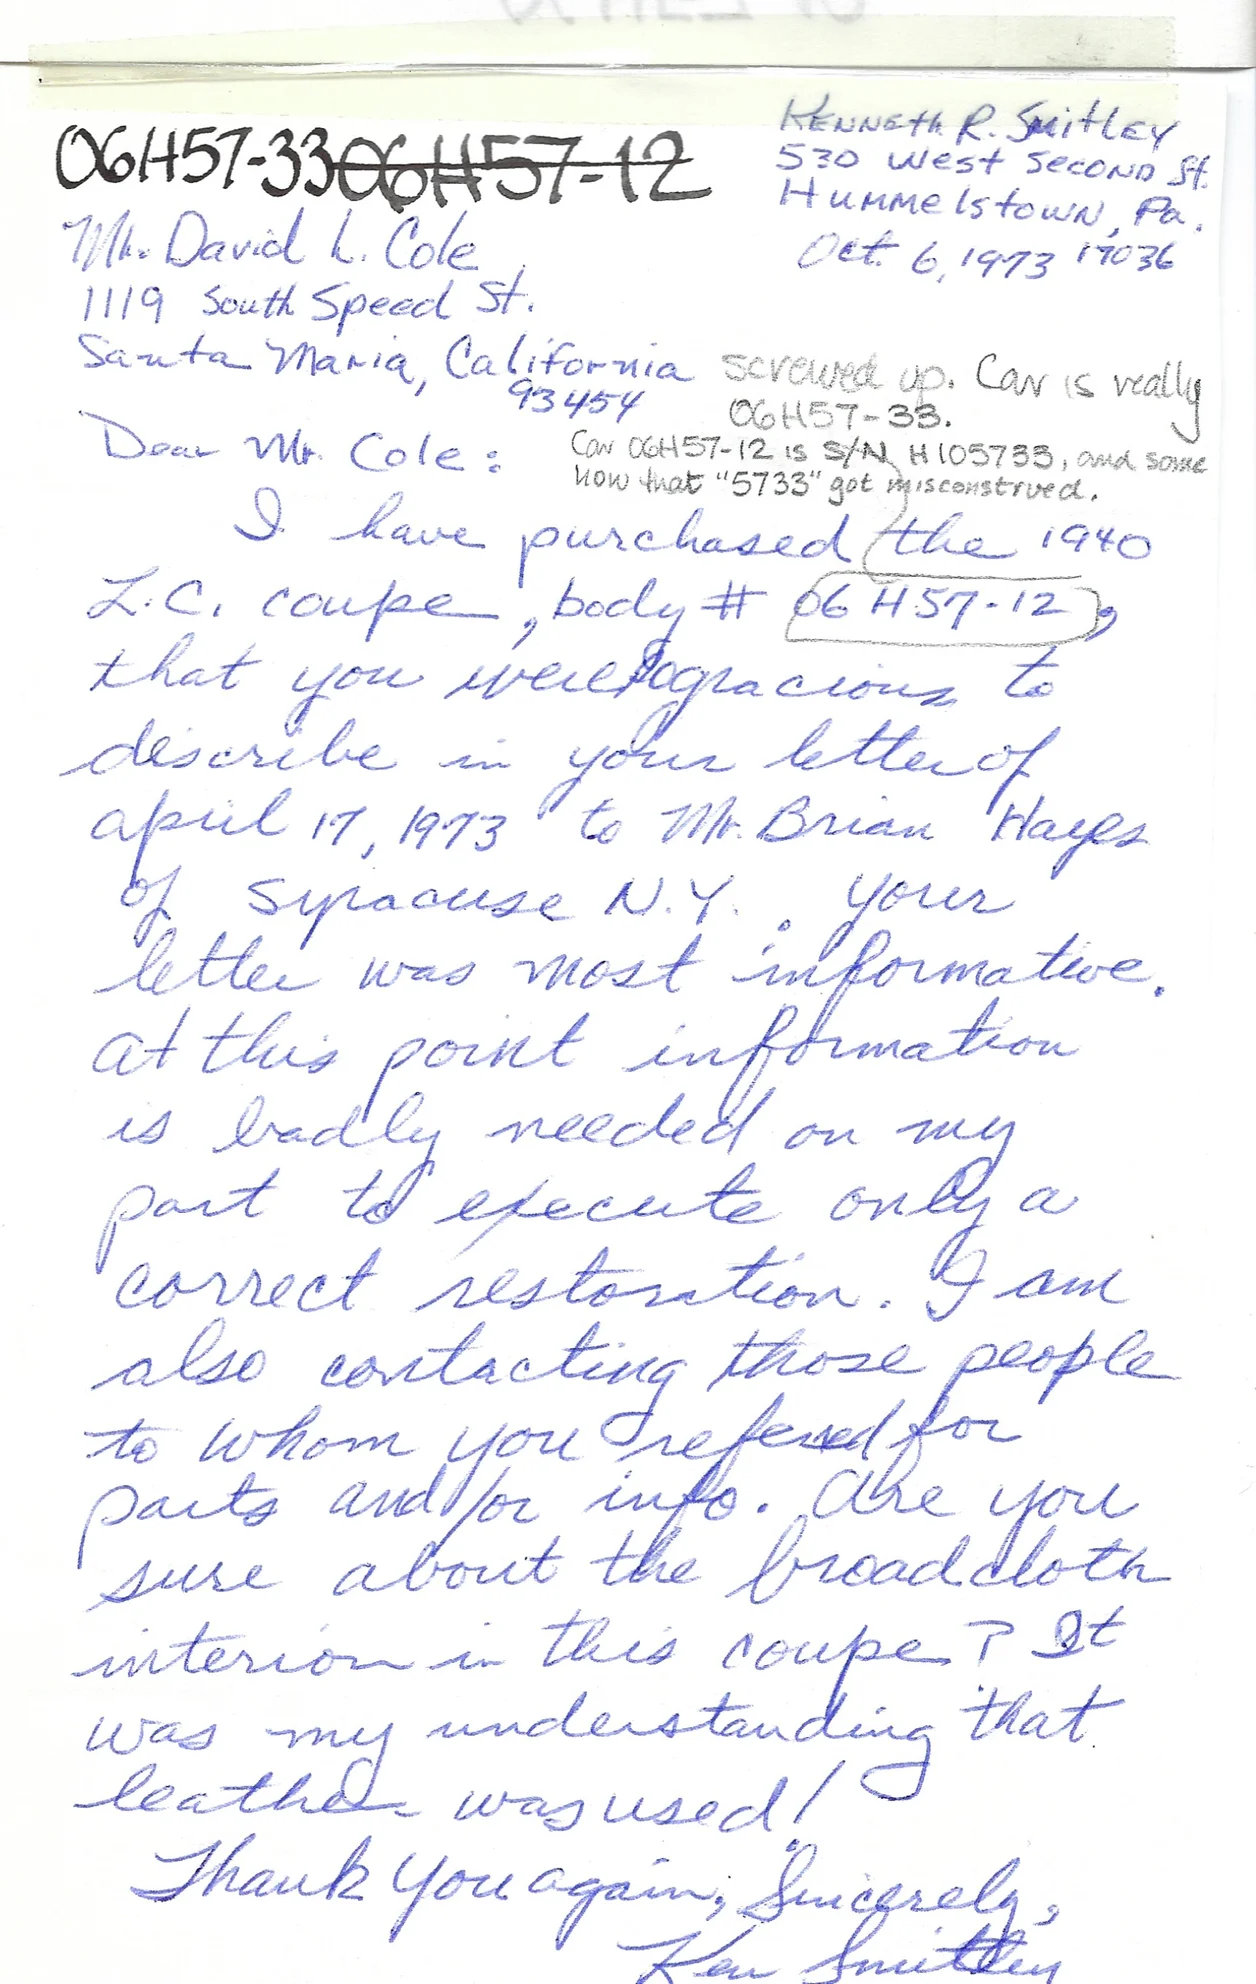 06H57-33 06H57-12
KENNETH R. SMITLEY
530 West Second St.
Hummelstown, Pa.
Oct. 6, 1973 17036
Mr. David L. Cole
1119 South Speed St.
Santa Maria, California
93454
screwed up. Car is really
06H57-33.
Car 06H57-12 is S/N H105733, and some
how that "5733" got misconstrued.
Dear Mr. Cole:
I have purchased the 1940
L.C. coupe, body # 06H57-12,
that you were so gracious to
describe in your letter of
april 17, 1973 to Mr. Brian Hayes
of Syracuse N.Y. . your
letter was most informative.
at this point information
is badly needed on my
part to execute only a
correct restoration. I am
also contacting those people
to whom you refered for
parts and/or info. are you
sure about the broadcloth
interior in this coupe? It
was my understanding that
leather was used!
Thank You again, Sincerely,
Ken Smitley